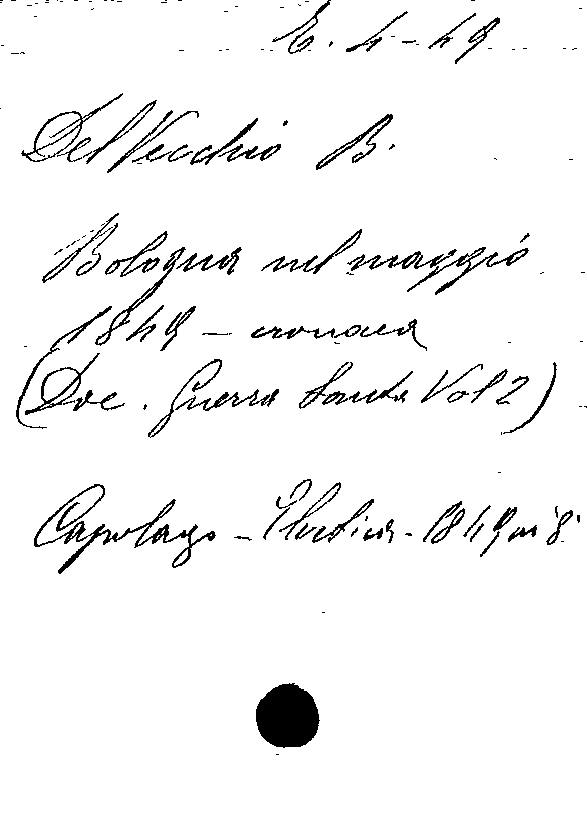 E. 4-49
Del Vecchio B.
Bologna nel maggio
1849 - cronaca
(Doc. Guerra Santa Vol 2)
Capolago - Elvetica - 1849 in 8°